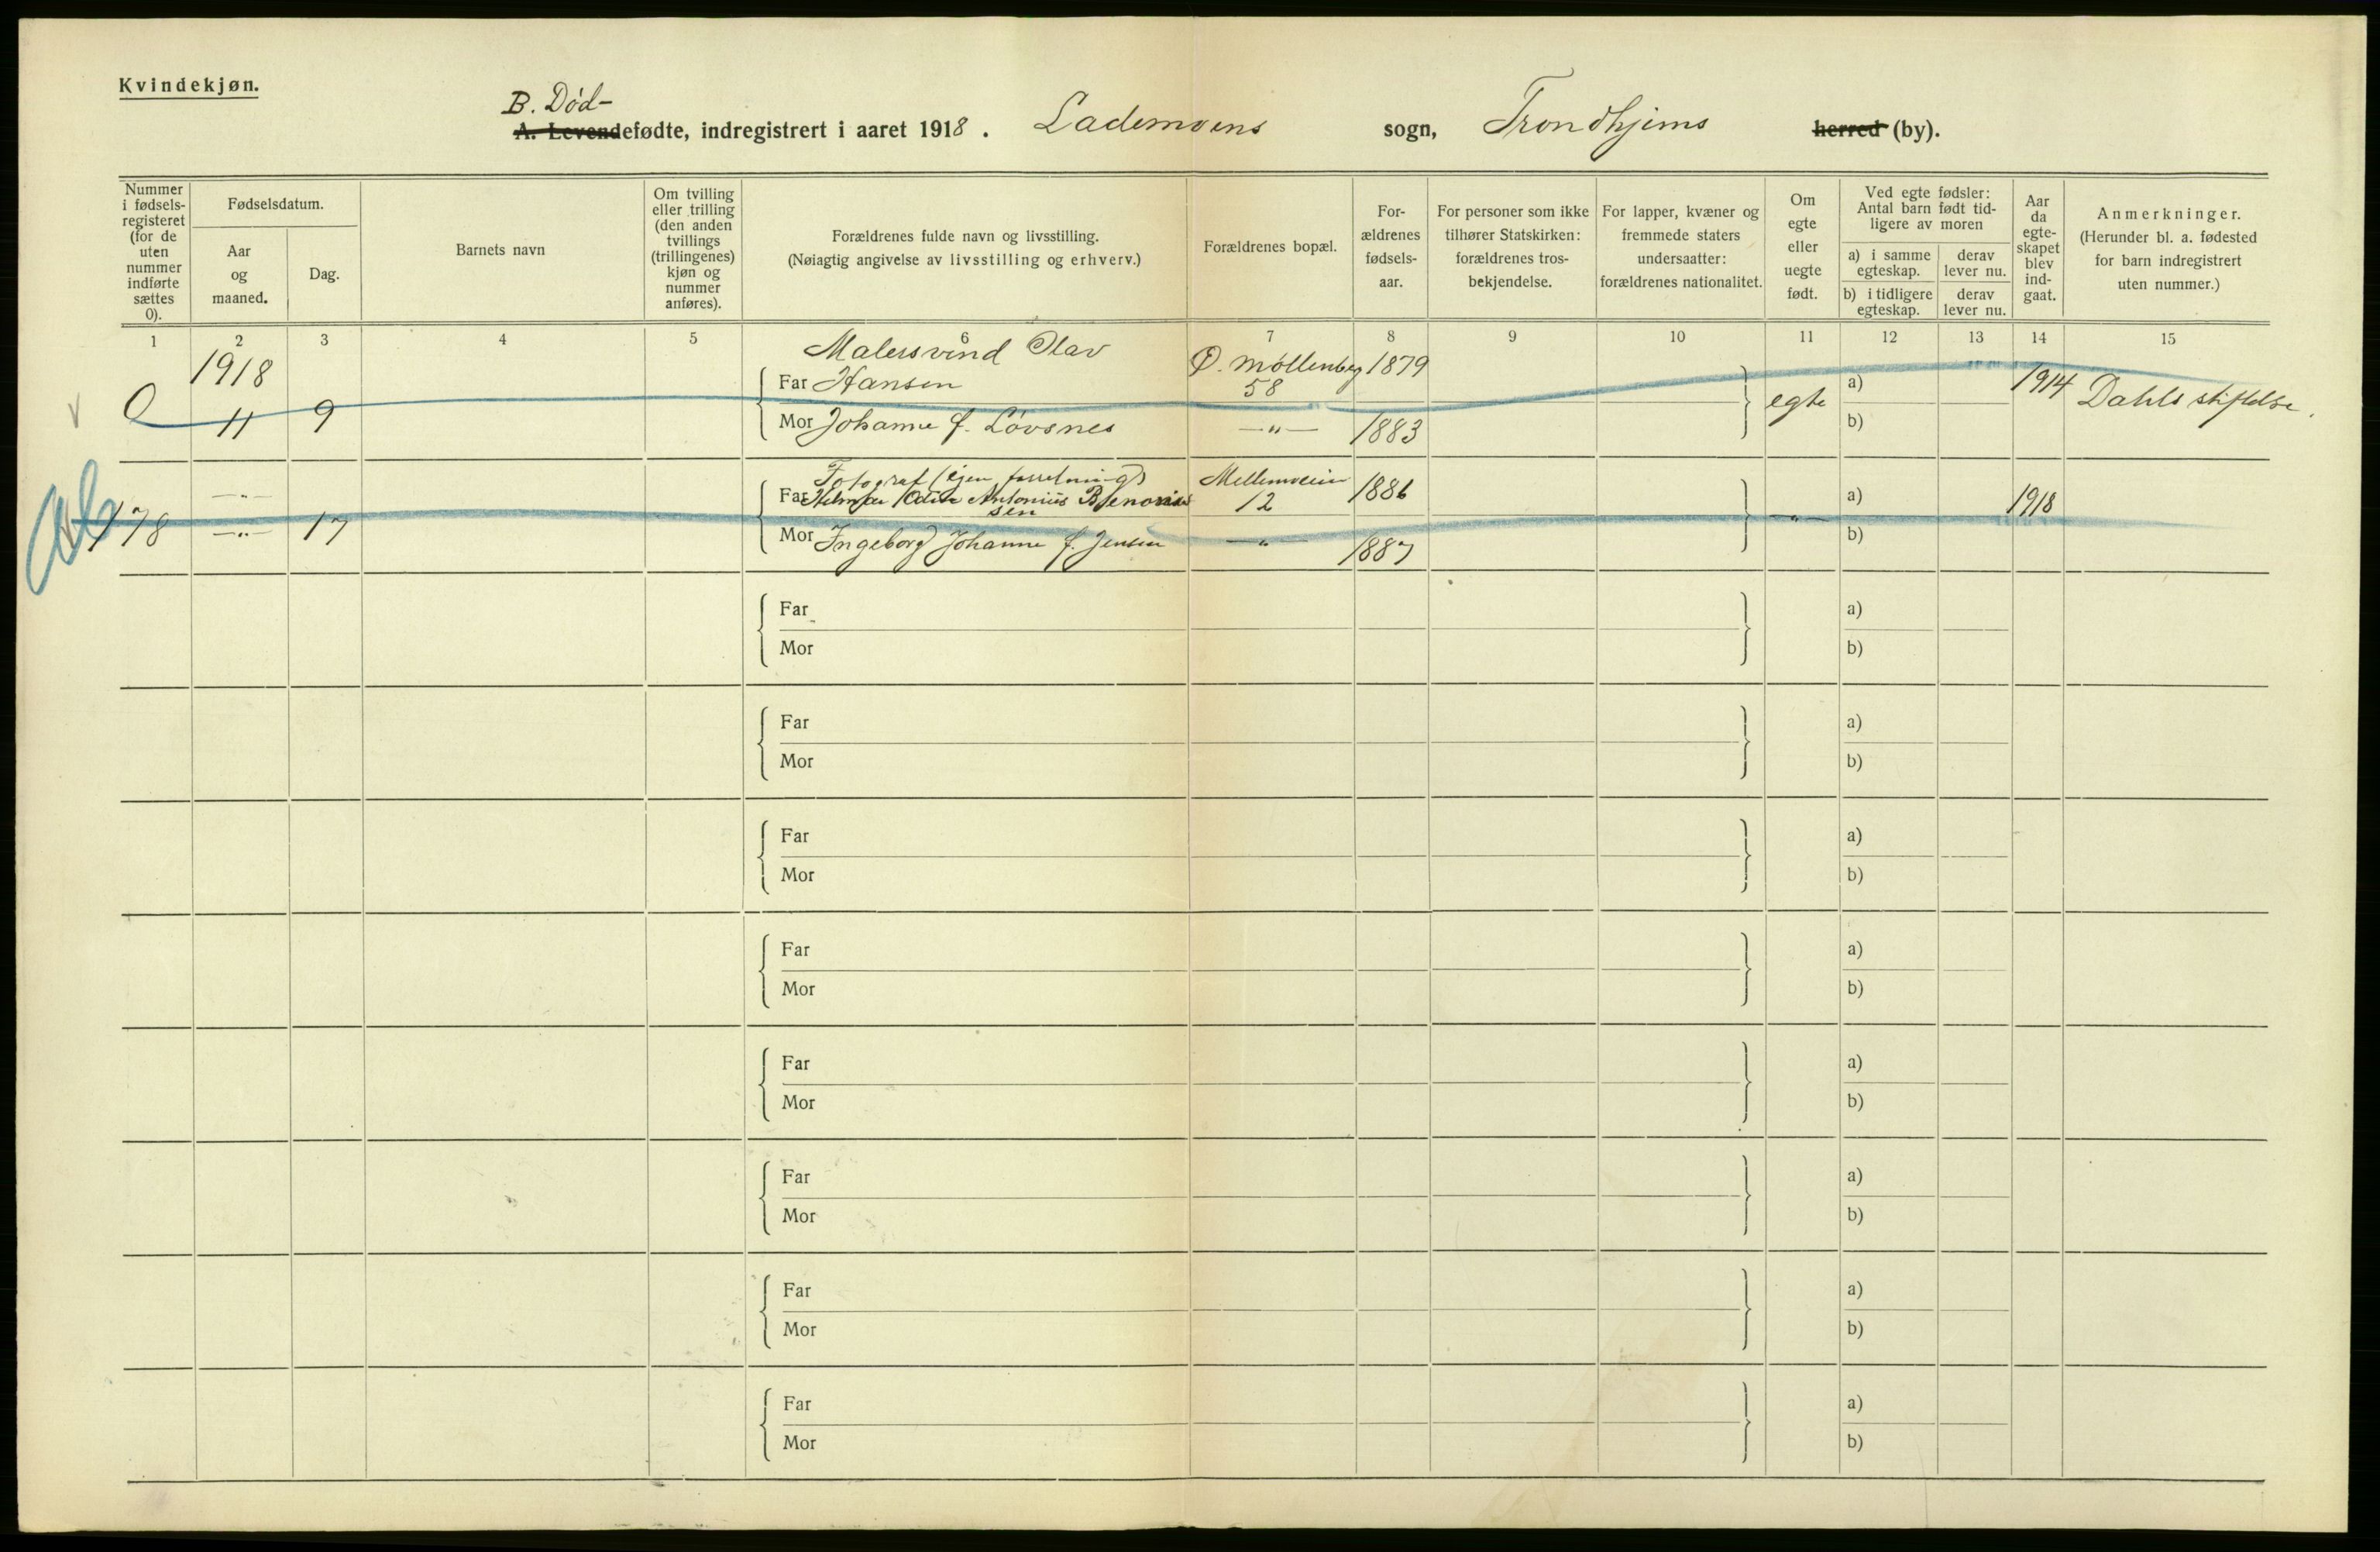 Kvindekjøn.
B. Død-
A. Levendefødte, indregistrert i aaret 1918. Lademoens sogn, Trondhjems herred (by).
Nummer i fødsels-registeret (for de uten nummer indførte sættes 0).
Fødselsdatum.
Aar og maaned.
Dag.
Barnets navn
Om tvilling eller trilling (den anden tvillings (trillingenes) kjøn og nummer anføres).
Forældrenes fulde navn og livsstilling.
(Nøiagtig angivelse av livsstilling og erhverv.)
Forældrenes bopæl.
For-ældrenes fødsels-aar.
For personer som ikke tilhører Statskirken: forældrenes tros-bekjendelse.
For lapper, kvæner og fremmede staters undersaatter: forældrenes nationalitet.
Om egte eller uegte født.
Ved egte fødsler: Antal barn født tid-ligere av moren
a) i samme egteskap.
derav lever nu.
b) i tidligere egteskap.
derav lever nu.
Aar da egte-skapet blev ind-gaat.
Anmerkninger.
(Herunder bl. a. fødested for barn indregistrert uten nummer.)
1 2 3 4 5 6 7 8 9 10 11 12 13 14 15
1918 Malersvend Olav Ø. Møllenberg 1879
Far Hansen 58 a) 1914 Dahls stiftelse.
0 11 9 egte
Mor Johanne f. Løvsnes —"— 1883 b)
Fotograf (egen forretning) Mellemveien
—"— Far Hilmar Odin Antonius 12 1886 a) 1918
sen
178 —"— 17 "
Mor Ingeborg Johanne f. Jensen —"— 1887 b)
Far a)
Mor b)
Far a)
Mor b)
Far a)
Mor b)
Far a)
Mor b)
Far a)
Mor b)
Far a)
Mor b)
Far a)
Mor b)
Far a)
Mor b)